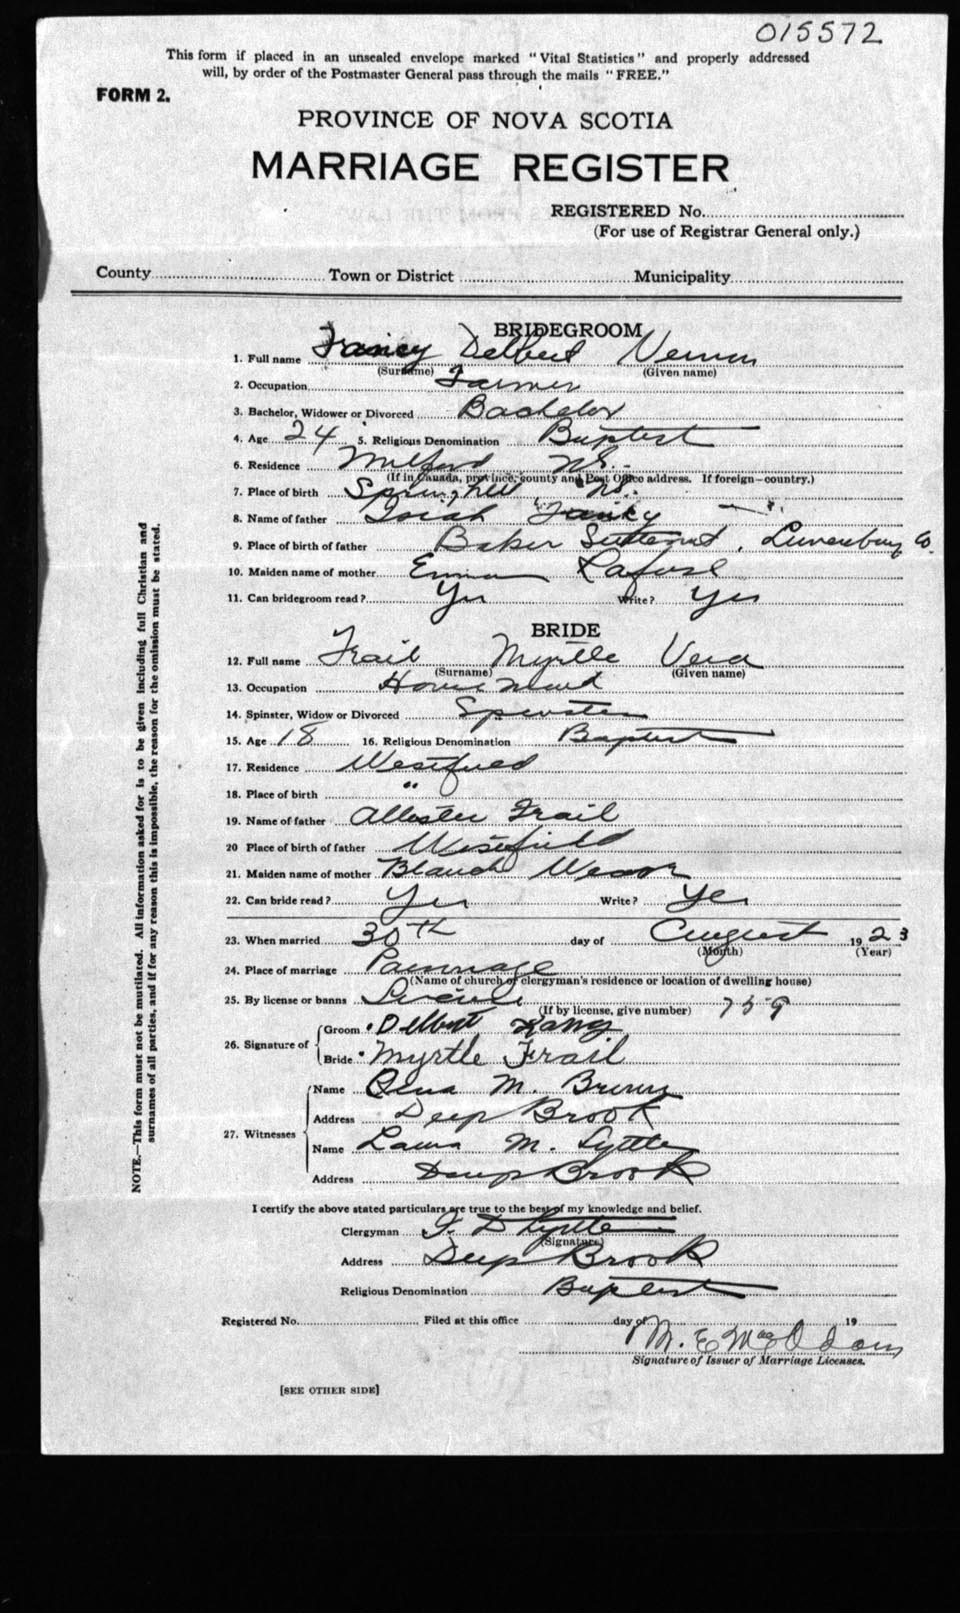 015572
This form if placed in an unsealed envelope marked "Vital Statistics" and properly addressed
will, by order of the Postmaster General pass through the mails "FREE."
FORM 2.
PROVINCE OF NOVA SCOTIA
MARRIAGE REGISTER
REGISTERED No.
(For use of Registrar General only.)
County Town or District Municipality
BRIDEGROOM
1. Full name Fancy Delbert Vernon
(Surname) (Given name)
2. Occupation Farmer
3. Bachelor, Widower or Divorced Bachelor
4. Age 24 5. Religious Denomination Baptist
6. Residence Milford NS.
(If in Canada, province, county and Post Office address. If foreign—country.)
7. Place of birth Springhill NS.
8. Name of father Isiah Fancy
9. Place of birth of father Baker Settlement, Lunenburg Co.
10. Maiden name of mother Emma Lafuse
11. Can bridegroom read? Yes Write? Yes
BRIDE
12. Full name Frail Myrtle Vera
(Surname) (Given name)
13. Occupation House Maid
14. Spinster, Widow or Divorced Spinster
15. Age 18 16. Religious Denomination Baptist
17. Residence Westfield
18. Place of birth "
19. Name of father Allister Frail
20 Place of birth of father Westfield
21. Maiden name of mother Blanch
22. Can bride read? Yes Write? Yes
23. When married 30th day of August 1923
(Month) (Year)
24. Place of marriage Parsonage
(Name of church or clergyman's residence or location of dwelling house)
25. By license or banns License 759
(If by license, give number)
26. Signature of
Groom Delbert Fancy
Bride Myrtle Frail
27. Witnesses
Name M.
Address Deep Brook
Name Laura M. Lyttle
Address Deep Brook
I certify the above stated particulars are true to the best of my knowledge and belief.
Clergyman D Lyttle
(Signature)
Address Deep Brook
Religious Denomination Baptist
Registered No. Filed at this office day of 19
M. E.
Signature of Issuer of Marriage Licenses.
[SEE OTHER SIDE]
NOTE.—This form must not be mutilated. All information asked for is to be given including full Christian and
surnames of all parties, and if for any reason this is impossible, the reason for the omission must be stated.